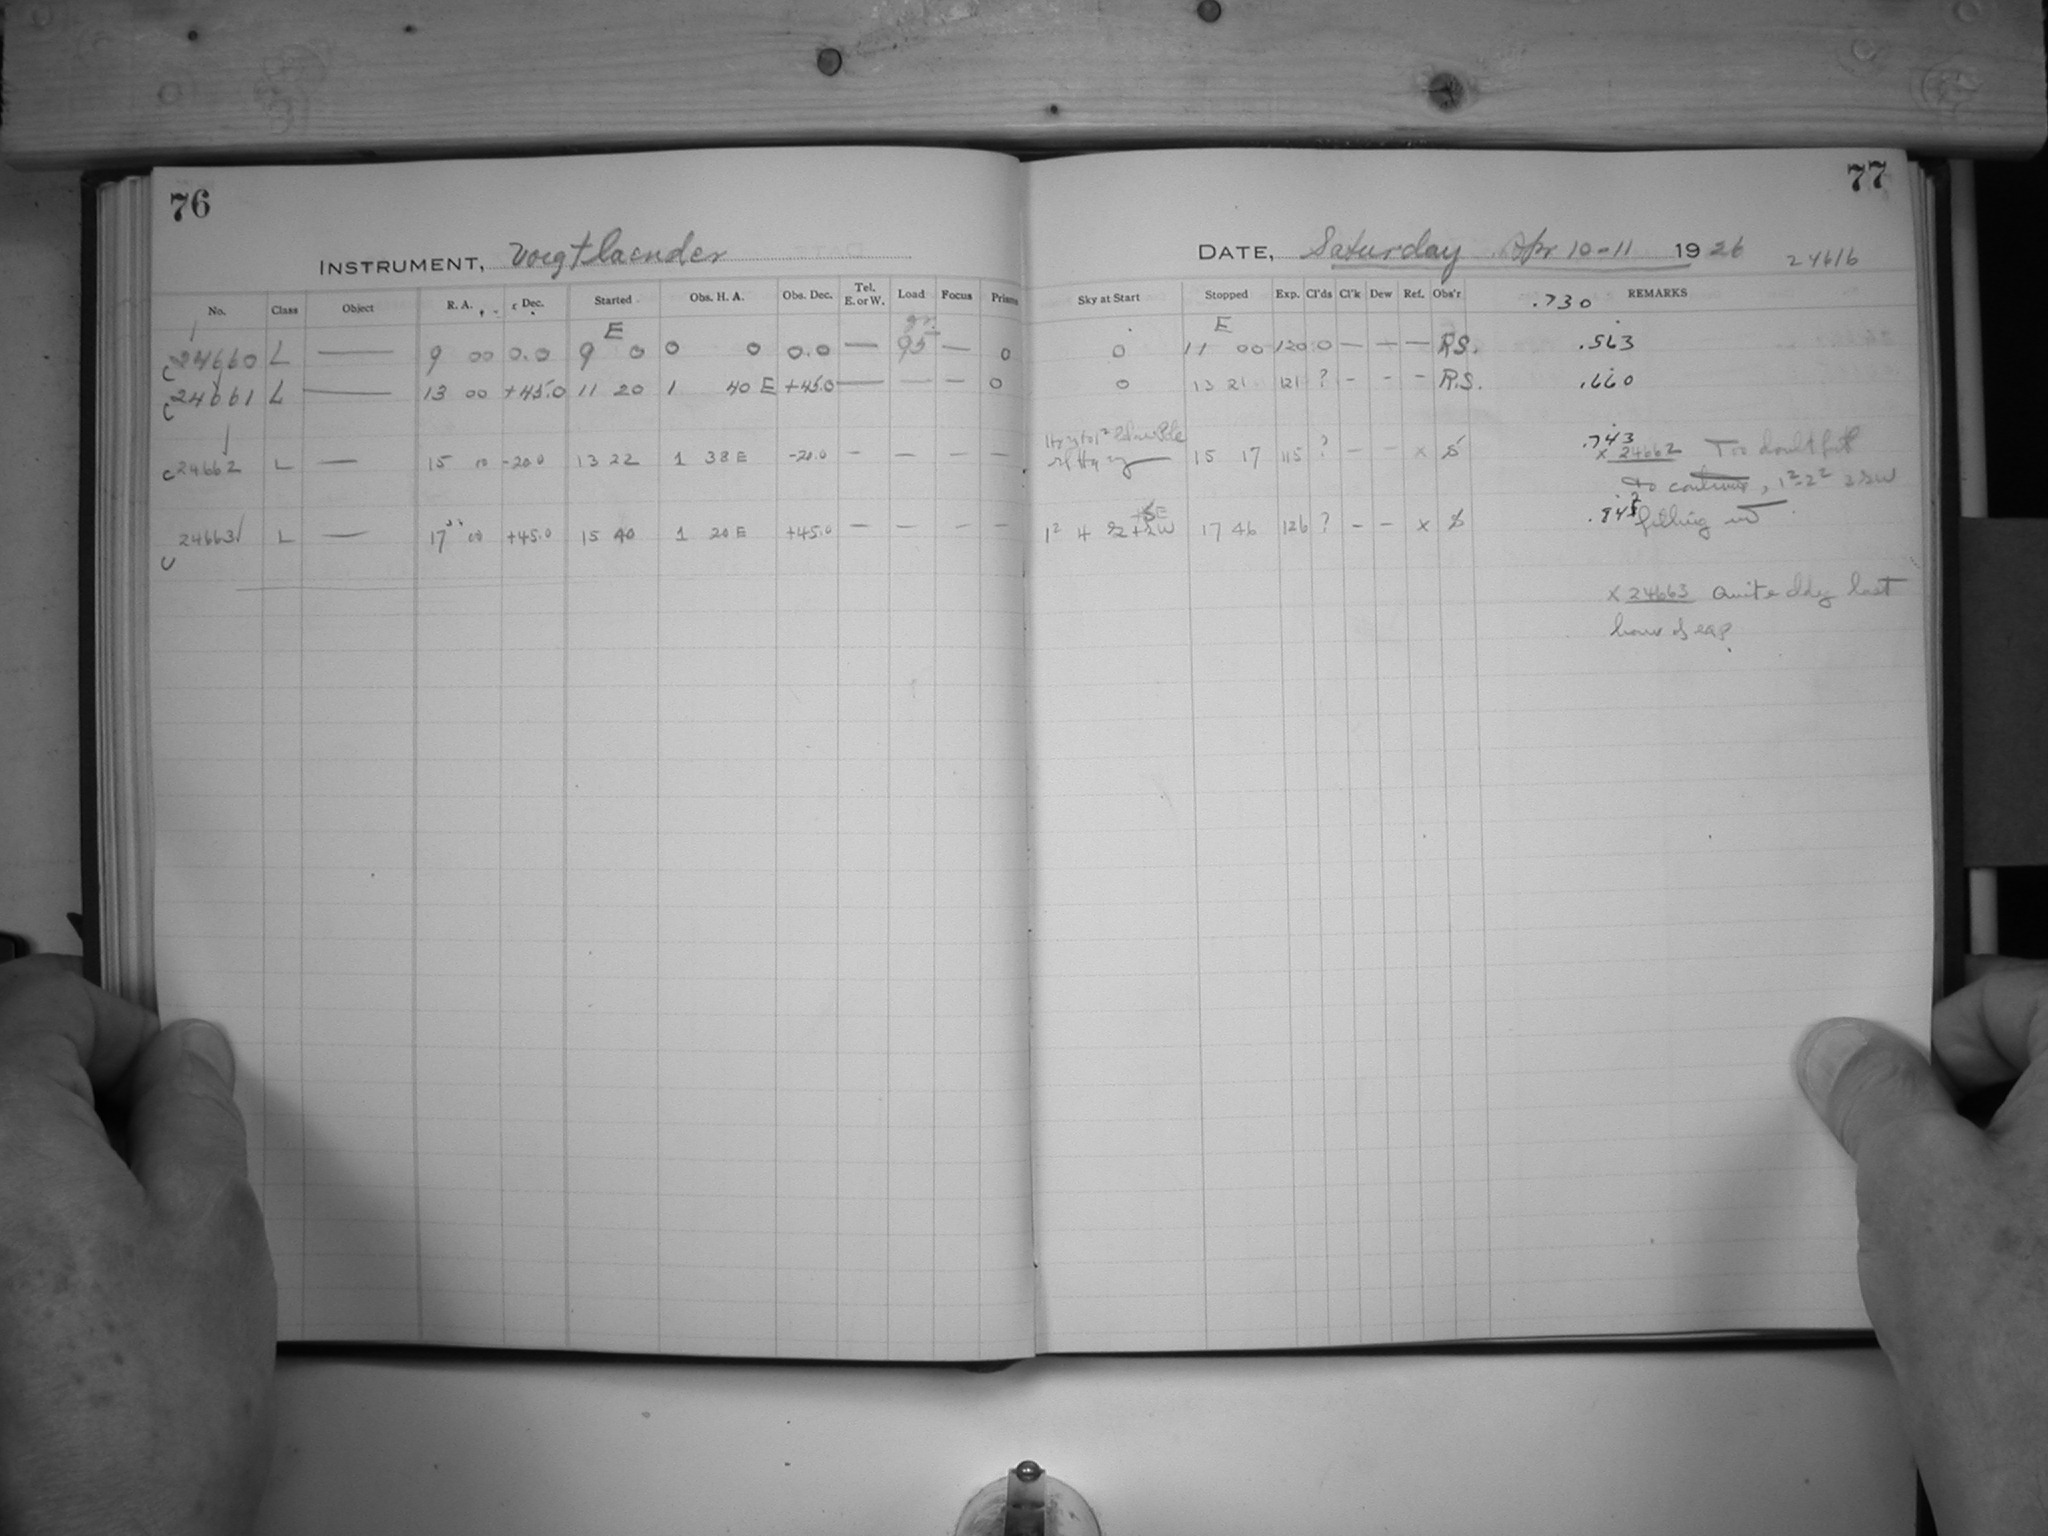 76
INSTRUMENT, Voigtlaender
No. Class Object R. A. Dec. Started Obs. H. A. Obs. Dec. Tel. E. or W. Load Focus Prisms
24660 L — 9 00 0.0 E 9 0 0 0 0.0 — 95 — 0
24661 L — 13 00 +45.0 11 20 1 40 E +45.0 — — — 0
24662 L — 15 10 -20.0 13 22 1 38 E -20.0 — — — —
24663 L — 17 00 +45.0 15 40 1 20 E +45.0 — — — —
77
DATE, Saturday Apr 10-11 1926 24616
Sky at Start Stopped Exp. Cl'ds Cl'k Dew Ref. Obs'r .730 REMARKS
0 E 11 00 120 0 — — — R.S. .563
0 13 21 121 ? - - - R.S. .660
15 17 115 ? — — x S .743
x 24662 Too doubtful
to continue, 1²-2²
1² H 17 46 126 ? - - x S .84
x 24663 Quite last
hour of exp.